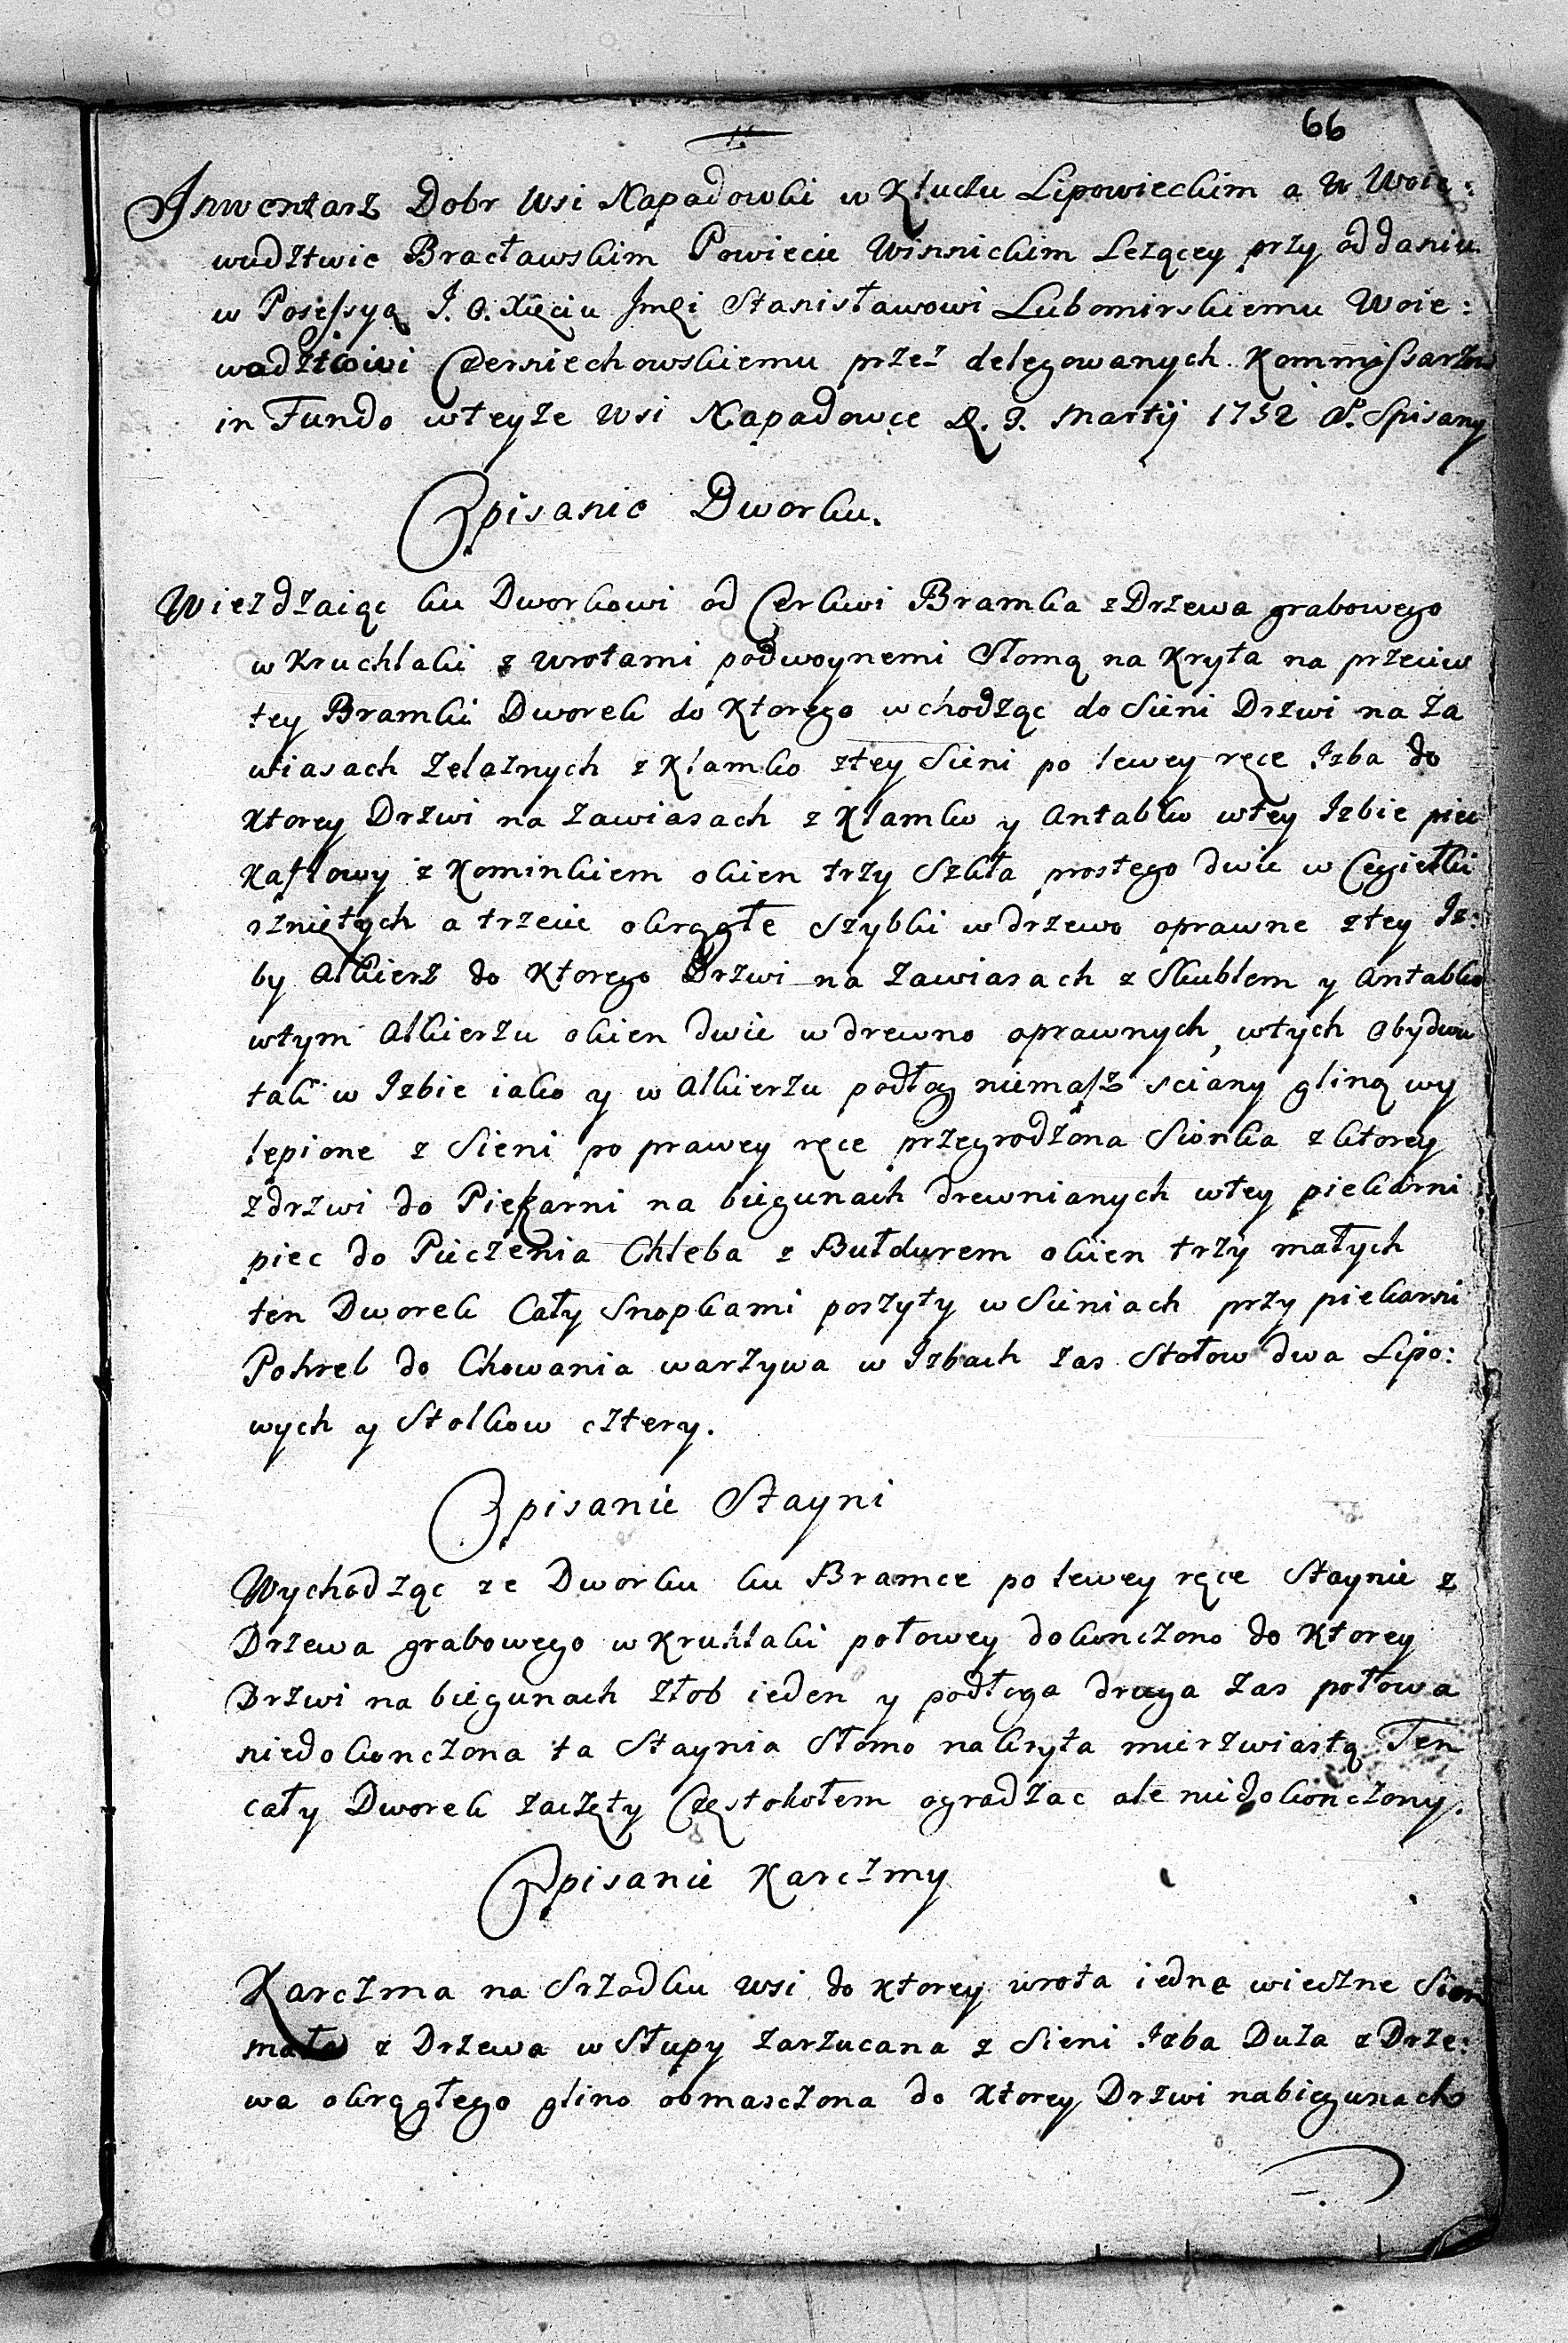 66
Inwentarz Dobr Wsi Napadowki w Kluczu Lipowieckim a w Woie:
wudztwie Bracławskim Powiecie Winnickim Leżącey przy oddaniu
w Posessyą J. O. Xięciu Jmci Stanisławowi Lubomirskiemu Woie:
wodzicowi Czerniechowskiemu przez delegowanych Kommissarzow
in Fundo wteyże Wsi Napadowce D. 9. Martij 1752 Spisany
Opisanie Dworku.
Wieżdzaiąc ku Dworkowi od Cerkwi Bramka z Drzewa grabowego
w Kruchlaki z wrotami podwoynemi Słomą na Kryta na przeciw
tey Bramki Dworek do Ktorego wchodząc do Sieni Drzwi na Za
wiasach Zelaznych z Klamko ztey Sieni po lewey ręce Izba do
Ktorey Drzwi na Zawiasach z Klamko y Antabko wtey Izbie piec
Kaflowy z Kominkiem okien trzy Szkła prostego dwie w Cegiełki
rzniętych a trzecie okrągłe Szybki w drzewo oprawne ztey Iz:
by Alkierz do Ktorego Drzwi na Zawiasach z Skublem y Antabko
wtym Alkierzu okien dwie w drewno oprawnych, wtych obydwu
tak w Izbie iako y w Alkierzu podłog niemasz sciany gliną wy
lepione z Sieni po prawey ręce przegrodzona Sionka z ktorey
z drzwi do Piekarni na biegunach drewnianych wtey piekarni
piec do Pieczenia Chleba z Bułdurem okien trzy małych
ten Dworek Cały Snopkami poszyty w Sieniach przy piekarni
Pohreb do Chowania warzywa w Izbach zas Stołow dwa Lipo:
wych y Stolkow cztery.
Opisanie Stayni
Wychodząc ze Dworku ku Bramce po lewey ręce Staynie z
Drzewa grabowego w Kruhlaki połowey dokonczono do Ktorey
Drzwi na biegunach Złob ieden y podłoga druga zas połowa
niedokonczona ta Staynia Słomo nakryta mierzwiastą Ten
cały Dworek zaczęty Częstokołem ogradzac ale niedokonczony.
Opisanie Karczmy
Karczma na Srzodku Wsi do Ktorey wrota iedne wieczne Sien
mała z Drzewa w Słupy zarzucana z Sieni Izba Duża z Drze:
wa okrągłego glino obmasczona do Ktorey Drzwi nabiegunach